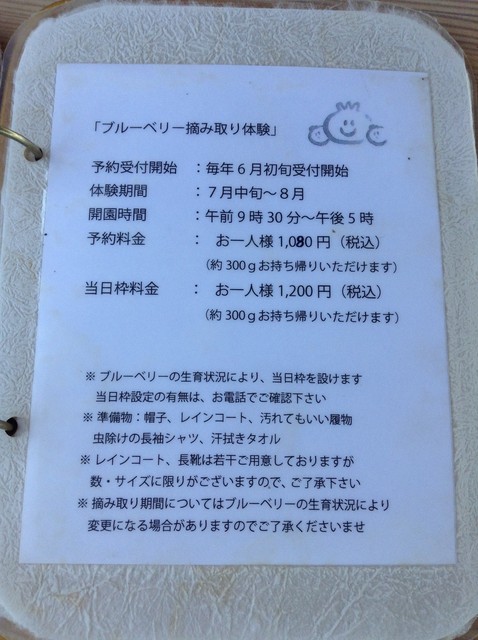 「ブルーベリー摘み取り体験」
予約受付開始 ：毎年６月初旬受付開始
体験期間 ：７月中旬～８月
開園時間 ：午前９時30分～午後５時
予約料金 ： お一人様1,080円（税込）
（約300ｇお持ち帰りいただけます）
当日枠料金 ： お一人様1,200円（税込）
（約300ｇお持ち帰りいただけます）
※ ブルーベリーの生育状況により、当日枠を設けます
当日枠設定の有無は、お電話でご確認下さい
※ 準備物：帽子、レインコート、汚れてもいい履物
虫除けの長袖シャツ、汗拭きタオル
※ レインコート、長靴は若干ご用意しておりますが
数・サイズに限りがございますので、ご了承下さい
※ 摘み取り期間についてはブルーベリーの生育状況により
変更になる場合がありますのでご了承くださいませ